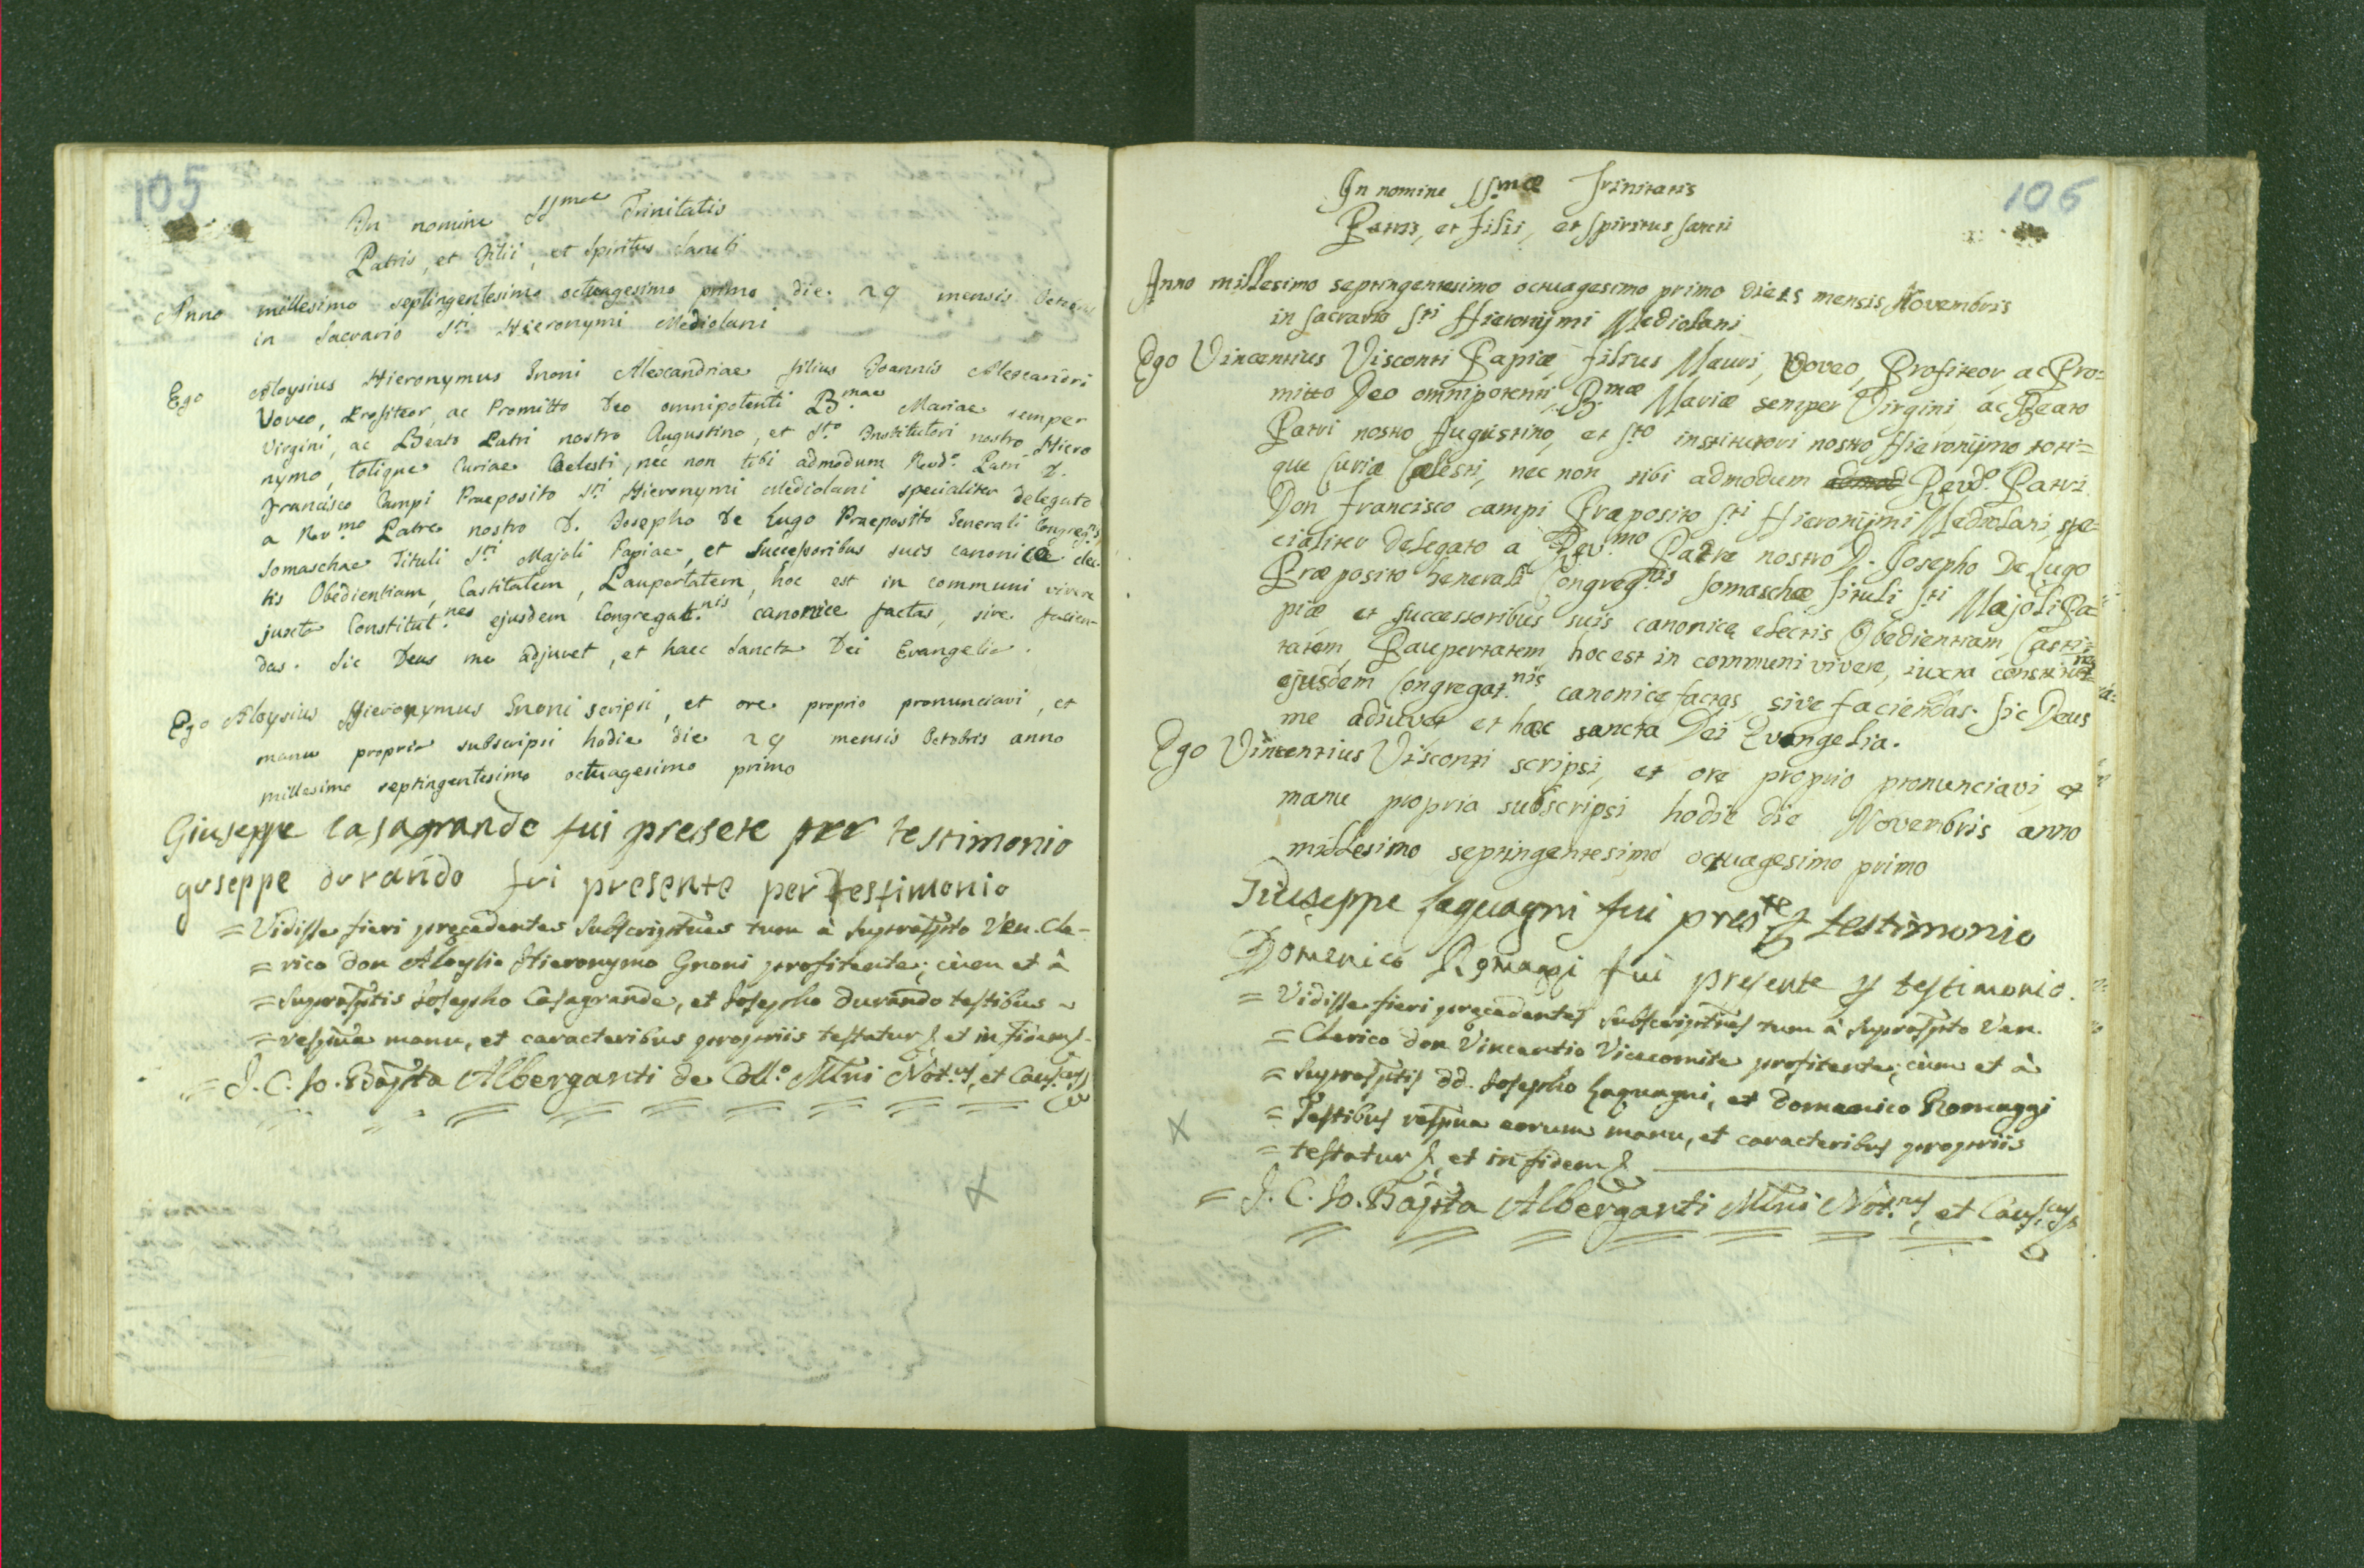 105
In nomine SSmae Trinitatis
Patris, et Filii, et Spiritus Sancti
Anno millesimo septingentesimo octuagesimo primo die 29 mensis Octobris
in Sacrario Sti Hieronymi Mediolani
Ego Aloysius Hieronymus Gnoni Alexandriae filius Joannis Alexandri
Voveo, Profiteor, ac Promitto Deo omnipotenti Bmae Mariae semper
Virgini, ac Beato Patri nostro Augustino, et Sto Institutori nostro Hiero
nymo, totique Curiae Caelesti, nec non tibi admodum Revdo. Patri D.
Francisco Campi Praeposito Sti Hieronymi Mediolani specialiter delegato
a Rev.mo Patre nostro D. Josepho De Lugo Praeposito Generali Congreg.nis
Somaschae Tituli Sti Majoli Papiae, et Successoribus suis canonice elec-
tis Obedientiam, Castitatem, Paupertatem, hoc est in communi vivere
juxta Constitut.nes ejusdem Congregat.nis canonice factas, sive facien-
das. Sic Deus me adjuvet, et haec Sancta Dei Evangelia.
Ego Aloysius Hieronymus Gnoni scripsi, et ore proprio pronunciavi, et
manu propria subscripsi hodie die 29 mensis Octobris anno
millesimo septingentesimo octuagesimo primo
Giuseppe Casagrande fui presete per testimonio
guseppe durando fui presente per testimonio
= Vidisse fieri precedentes Subscriptnes tum à supraspto Ven. Cle-
= rico don Aloysio Hieronymo Gnoni profitente; cùm et à
= suprasptis Josepho Casagrande, et Josepho durando testibus
= respiva manu, et caracteribus propriis testatur &, et in fidem &.
= J. C. Jo. Bapta Alberganti de Collo. Mlni Not.us, et Caus.cus
X
106
In nomine SSmæ Trinitatis
Patris, et Filii, et Spiritus Sancti
Anno millesimo septingentesimo octuagesimo primo die 15 mensis Novembris
in Sacrario Sti Hieronymi Mediolani
Ego Vincentius Visconti Papiæ, filius Mauri, Voveo, Profiteor, ac Pro=
mitto Deo omnipotenti, B.mæ Mariæ semper Virgini, ac Beato
Patri nostro Augustino, et Sto institutori nostro Hieronymo toti=
que Curiæ Cælesti, nec non tibi admodum Revdo. Patri
Don Francisco campi Præposito Sti Hieronijmi Mediolani, spe=
cialiter delegato a Rev.mo Padre nostro D. Josepho De Lugo
Præposito Generali Congreg.nis Somaschæ Tituli Sti Majoli Pa=
piæ et successoribus suis canonicę electis Obedientiam, Casti=
tatem, Paupertatem hoc est in communi vivere, iuxta constitut.nes
ejusdem Congregat.nis canonicę factas, sive faciendas. Sic Deus
me adiuvet et hæc sancta Dei Evangelia.
Ego Vincentius Visconti scripsi, et ore proprio pronunciavi, et
manu propria subscripsi hodie die Novembris anno
millesimo septingentesimo octuagesimo primo
Giuseppe Laquagni fui pres.te p testimonio
Domenico Romaggi fui presente p testimonio.
= Vidisse fieri precedentes subscriptnes tum à supraspto Ven.
= Clerico don Vincentio Vicecomite profitente; cùm et à
= suprasptis dd. Josepho Laquagni, et Domenico Romaggi
= Testibus respiva eorum manu, et caracteribus propriis
= testatur &, et in fidem &
= J. C. Jo. Bapta Alberganti Mlni Not.us, et Caus.cus
X